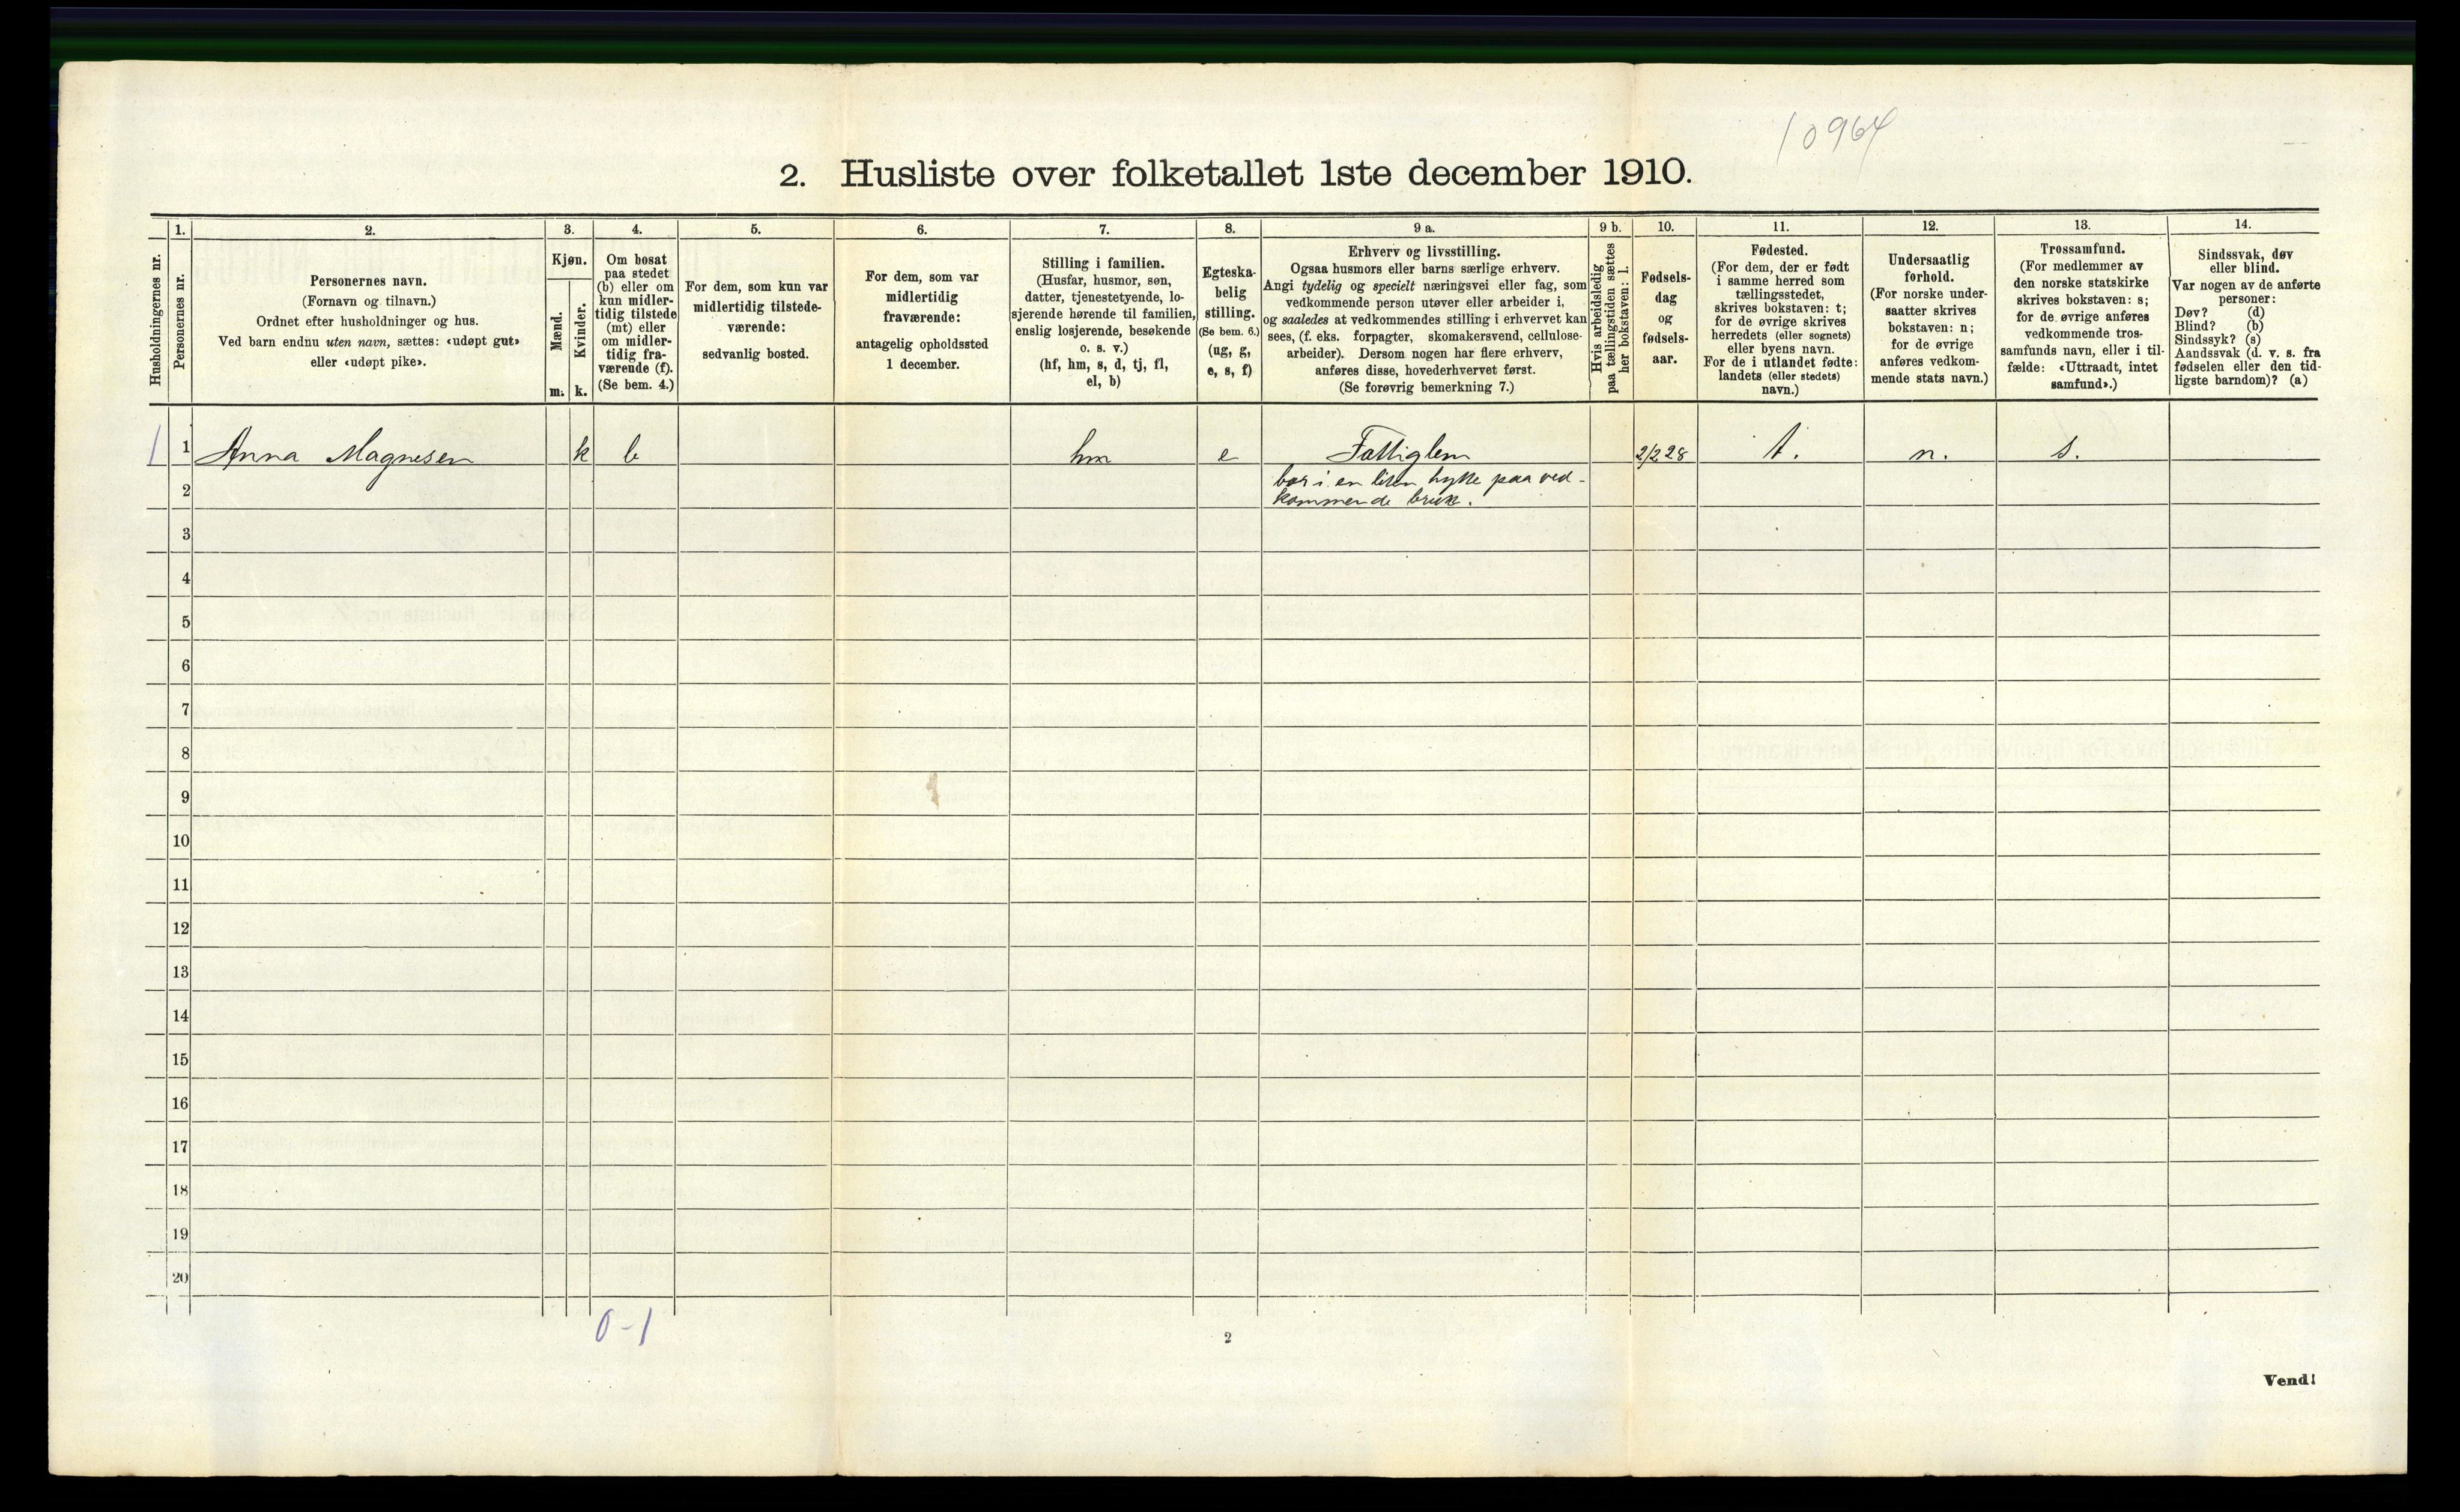 10964
2. Husliste over folketallet 1ste december 1910.
Husholdningernes nr.
1.
Personernes nr.
2.
Personernes navn.
(Fornavn og tilnavn.)
Ordnet efter husholdninger og hus.
Ved barn endnu uten navn, sættes: «udøpt gut»
eller «udøpt pike».
3.
Kjøn.
Mænd.
Kvinder.
m. k.
4.
Om bosat
paa stedet
(b) eller om
kun midler-
tidig tilstede
(mt) eller
om midler-
tidig fra-
værende (f).
(Se bem. 4.)
5.
For dem, som kun var
midlertidig tilstede-
værende:
sedvanlig bosted.
6.
For dem, som var
midlertidig
fraværende:
antagelig opholdssted
1 december.
7.
Stilling i familien.
(Husfar, husmor, søn,
datter, tjenestetyende, lo-
sjerende hørende til familien,
enslig losjerende, besøkende
o. s. v.)
(hf, hm, s, d, tj, fl,
el, b)
8.
Egteska-
belig
stilling.
(Se bem. 6.)
(ug, g,
e, s, f)
9 a.
Erhverv og livsstilling.
Ogsaa husmors eller barns særlige erhverv.
Angi tydelig og specielt næringsvei eller fag, som
vedkommende person utøver eller arbeider i,
og saaledes at vedkommendes stilling i erhvervet kan
sees, (f. eks. forpagter, skomakersvend, cellulose-
arbeider). Dersom nogen har flere erhverv,
anføres disse, hovederhvervet først.
(Se forøvrig bemerkning 7.)
9 b.
Hvis arbeidsledig
paa tællingstiden sættes
her bokstaven: l.
10.
Fødsels-
dag
og
fødsels-
aar.
11.
Fødested.
(For dem, der er født
i samme herred som
tællingsstedet,
skrives bokstaven: t;
for de øvrige skrives
herredets (eller sognets)
eller byens navn.
For de i utlandet fødte:
landets (eller stedets)
navn.)
12.
Undersaatlig
forhold.
(For norske under-
saatter skrives
bokstaven: n;
for de øvrige
anføres vedkom-
mende stats navn.)
13.
Trossamfund.
(For medlemmer av
den norske statskirke
skrives bokstaven: s;
for de øvrige anføres
vedkommende tros-
samfunds navn, eller i til-
fælde: «Uttraadt, intet
samfund».)
14.
Sindssvak, døv
eller blind.
Var nogen av de anførte
personer:
Døv? (d)
Blind? (b)
Sindssyk? (s)
Aandssvak (d. v. s. fra
fødselen eller den tid-
ligste barndom)? (a)
1 1 Anna Magnesen k b hm e Fattiglem 2/2 28 t. n. s.
2 bor i en liten hytte paa ved-
kommende bruk.
3
4
5
6
7
8
9
10
11
12
13
14
15
16
17
18
19
20
0-1
2
Vend!